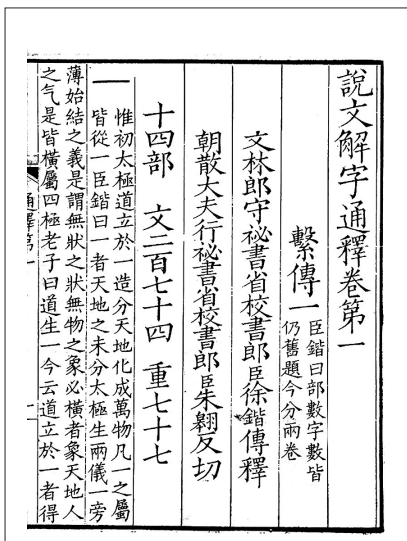 說文解字通釋卷第一
繫傳一
臣鍇曰部數字數皆
仍舊題今分兩卷
文林郎守祕書省校書郎臣徐鍇傳釋
朝散大夫行祕書省校書郎臣朱翶反切
十四部　文二百七十四　重七十七
一
惟初太極道立於一造分天地化成萬物凡一之屬
皆從一臣鍇曰一者天地之未分太極生兩儀一旁
薄始結之義是謂無狀之狀無物之象必橫者象天地人
之气是皆橫屬四極老子曰道生一今云道立於一者得
通釋第一